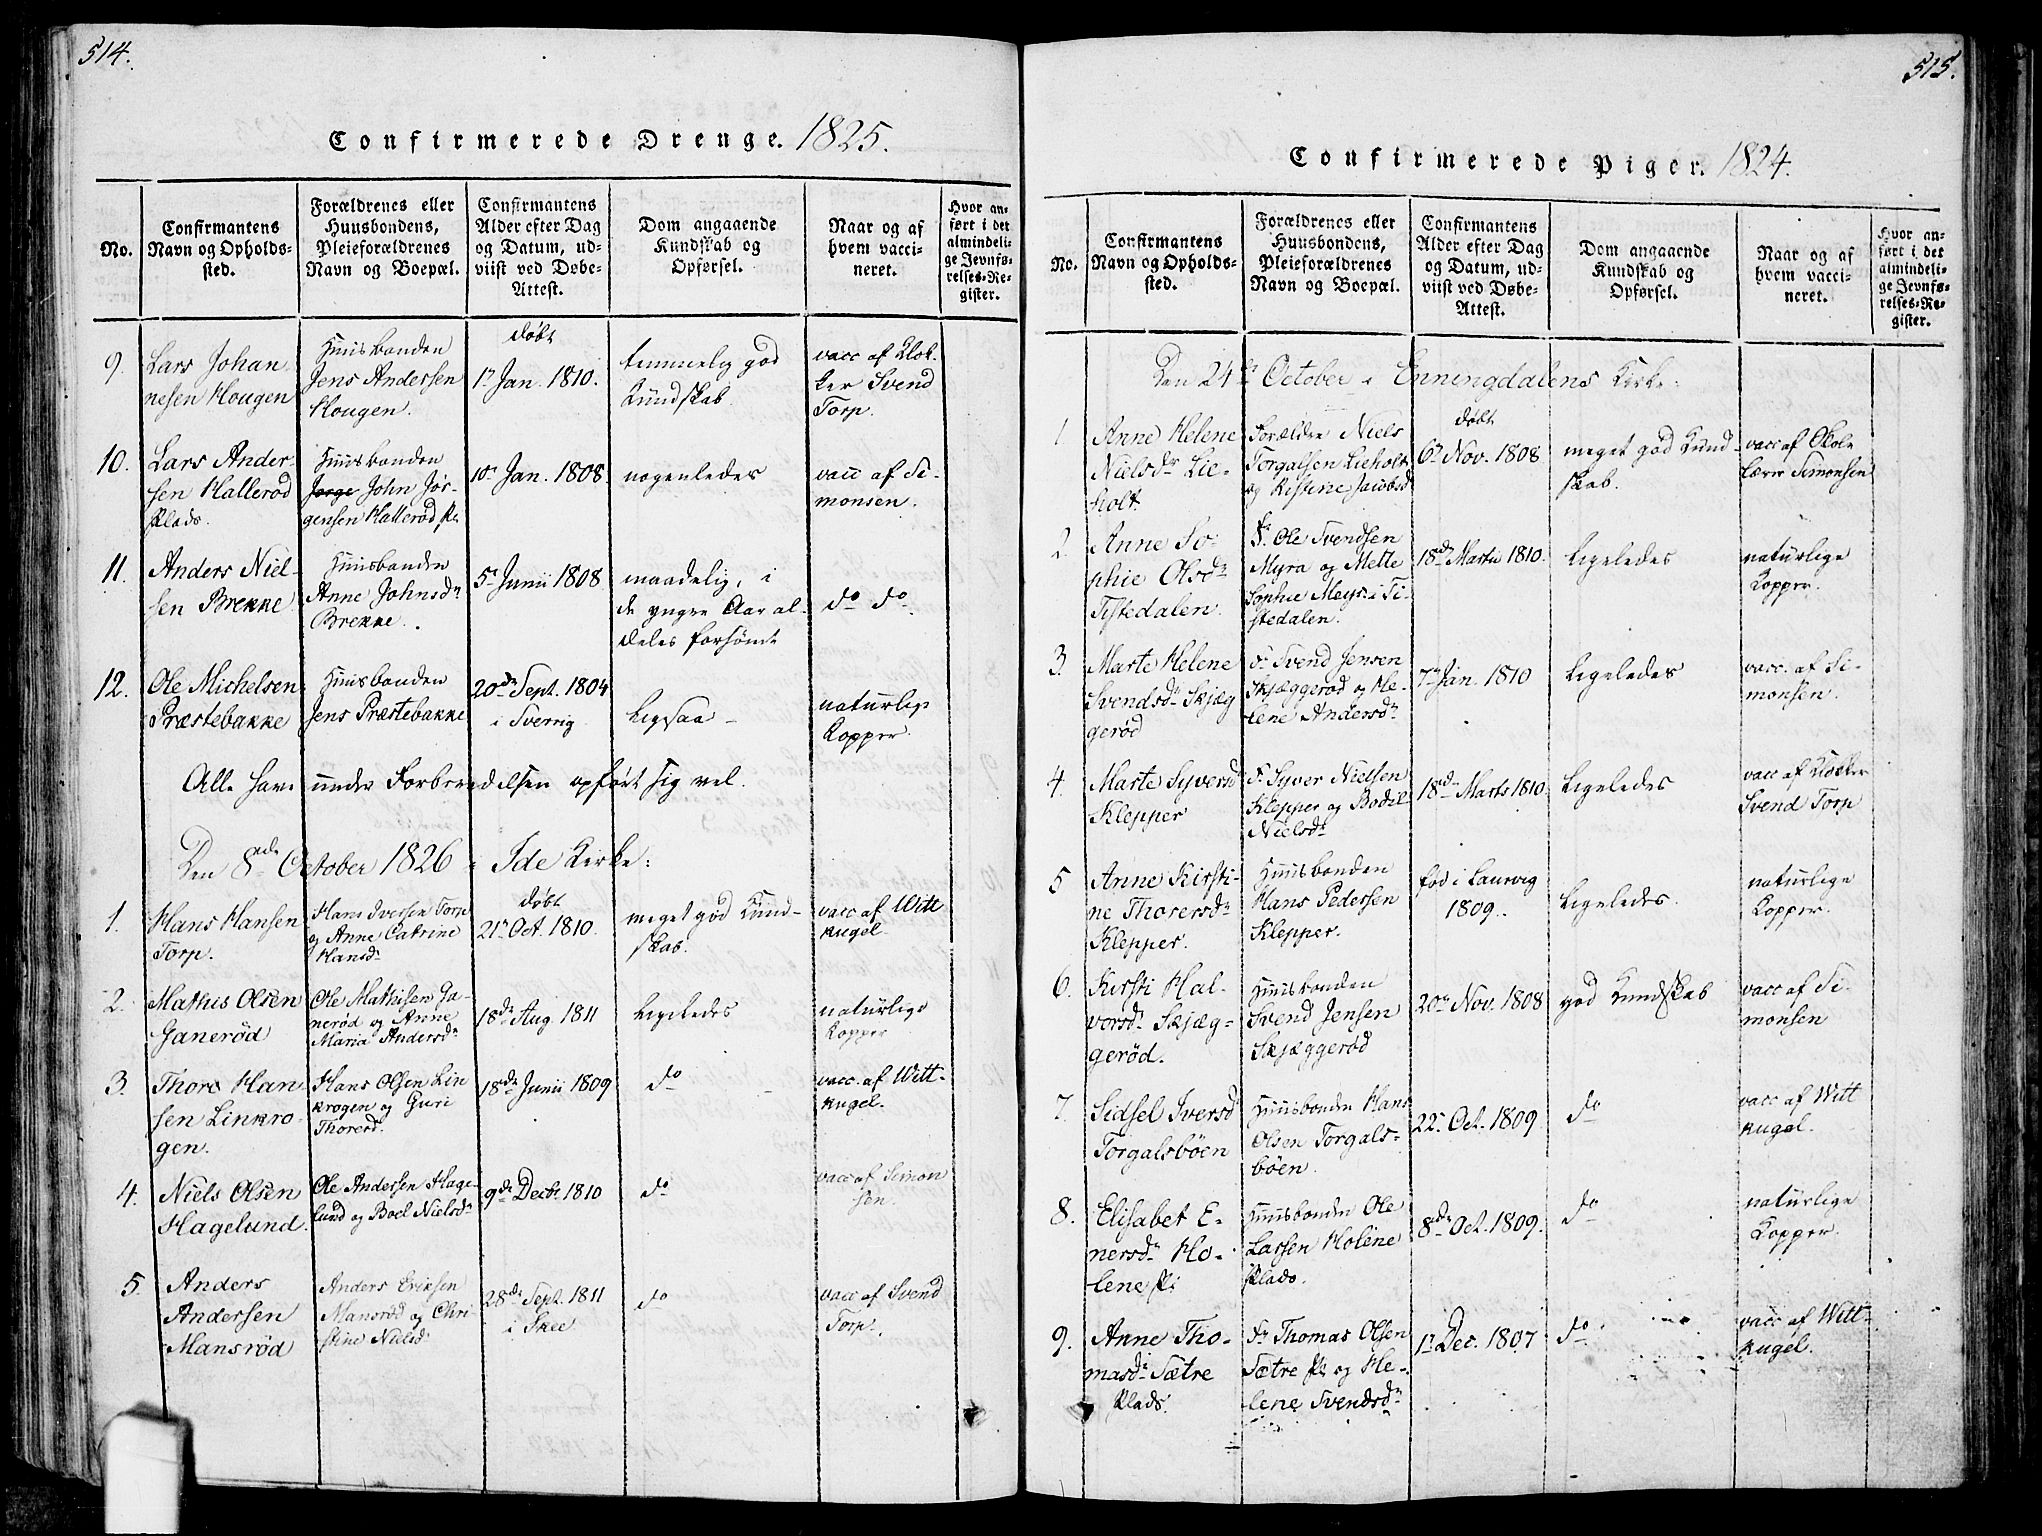 514.
Confirmerede Drenge. 1825.
No.
Confirmantens
Navn og Opholds-
sted.
Forældrenes eller
Huusbondens,
Pleieforældrenes
Navn og Boepæl.
Confirmantens
Alder efter Dag
og Datum, ud-
viist ved Døbe-
Attest.
Dom angaaende
Kundskab og
Opførsel.
Naar og af
hvem vacci-
neret.
Hvor an-
ført i det
almindeli-
ge Jevnfø-
relses-Re-
gister.
9.
Lars Johan-
nesen Hougen
Huusbonden
Jens Andersen
Hougen.
døbt
1n Jan. 1810.
temmelig god
Kundskab.
vacc af Klok-
ker Svend
Torp.
10.
Lars Ander-
sen Hallerød
Plads.
Huusbonden
Jorge John Jør-
gensen Hallerød Pl.
1n Jan. 1808.
nogenledes
vacc af Si-
monsen.
11.
Anders Niel-
sen Brekke
Huusbonden
Anne Johnsdr
Brekke.
5n Junii 1808
maadelig, i
de yngre Aar al-
deles forsömt
do do
12.
Ole Michelsen
Præstebakke
Huusbonden
Jens Præstebakke
20de Sept. 1804
i Sverrig
Ligesaa
naturlige
Kopper.
Alle have under Forberedelsen opført sig vel.
Den 8nde October 1826 i Ide Kirke:
1.
Hans Hansen
Torp.
Hans Iversen Torp
og Anne Catrine
Hansdr
døbt
21n Oct. 1810.
meget god Kund-
skab.
vacc af Witt
kugel.
2.
Mathis Olsen
Ganerød
Ole Mathisen Ga-
nerød og Anne
Maria Andersdr
18de Aug. 1811
Ligeledes
naturlige
Kopper
3.
Thore Han-
sen Linkro-
gen.
Hans Olsen Lin
krogen og Guri
Thoresd.
18de Junii 1809
do
vacc. af Witt-
kugel.
4.
Niels Olsen
Hagelund.
Ole Andersen Hage-
lund og Boel Nielsdr
9de Decbr. 1810
do
vacc af Simon
sen.
5.
Anders
Andersen
Mansrød
Anders Eriksen
Mansrød og Chri
stine Nielsd
28de Sept. 1811
i Skee
do
vacc af Svend
Torp.
515.
Confirmerede Piger. 1824.
No.
Confirmantens
Navn og Opholds-
sted.
Forældrenes eller
Huusbondens,
Pleieforældrenes
Navn og Boepæl.
Confirmantens
Alder efter Dag
og Datum, ud-
viist ved Døbe-
Attest.
Dom angaaende
Kundskab og
Opførsel.
Naar og af
hvem vacci-
neret.
Hvor an-
ført i det
almindeli-
ge Jevnfø-
relses-Re-
gister.
Den 24de October i Enningdalens Kirke:
1
Anne Helene
Nielsdr Lie-
holt.
Forældre Niels
Torgalsen Lieholt
og Kistine Jacobsd
døbt
6n Nov. 1808
meget god Kund-
skab.
vacc af Skole
lærer Simonsen
2.
Anne So-
phie Olsdr
Tistedalen.
Fr Ole Svendsen
Myra og Mette
Sophie Meyr i Ti-
stedalen.
18de Martii 1810.
Ligeledes
naturlige
Kopper.
3.
Marte Helene
Svendsdr Skjæg
gerød
Fr Svend Jensen
Skjæggerød og He-
lene Andersdr
7n Jan. 1810
Ligeledes
vacc. af Si-
monsen.
4.
Marte Syversd
Klepper
Fr Syver Nielsen
Klepper og Bodil
Nielsdr
18de Marts 1810.
Ligeledes
vacc af Klokker
Svend Torp
5
Anne Kirsti-
ne Thorersdr
Klepper.
Huusbonden
Hans Pedersen
Klepper.
fød i Laurvig
1809.
Ligeledes.
naturlige
Kopper.
6.
Kirsti Hal-
vorsdr Skjæg-
gerød.
Huusbonden
Svend Jensen
Skjæggerød
20n Nov. 1808
god Kundskab
vacc af Si-
monsen
7.
Sidsel Iversd
Torgalsböen
Huusbonden Hans
Olsen Torgals-
böen.
22n Oct. 1809.
do
vacc af Witt
kugel.
8.
Elisabet E-
nersdr Ho-
lene Pl:
Huusbonden Ole
Larsen Holene
Plads.
8nde Oct. 1809.
do
naturlige
Kopper.
9.
Anne Tho-
masdr Sætre
Plads.
Fr Thomas Olsen
Sætre Pl: og He-
lene Svendsdr
1n Dec. 1807
do
vacc af Witt-
kugel.